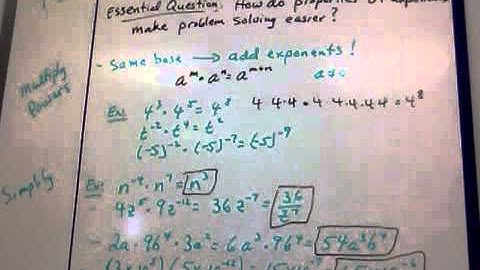 Essential Question: How do properties of
make problem solving easier?
Multiply Powers
- Same base → add exponents!
aᵐ · aⁿ = aᵐ⁺ⁿ
Ex: 4³ · 4⁵ = 4⁸ 4·4·4·4·4·4·4·4 = 4⁸
t⁻² · t⁴ = t²
(-5)⁻² · (-5)⁻⁷ = (-5)⁻⁹
Simplify
Ex: n⁻⁴ · n⁷ = n³
- 4z⁵ · 9z⁻¹² = 36z⁻⁷ = 36/z⁷
- 2a · 9b⁴ · 3a² = 6a³ · 9b⁴ = 54a³b⁴